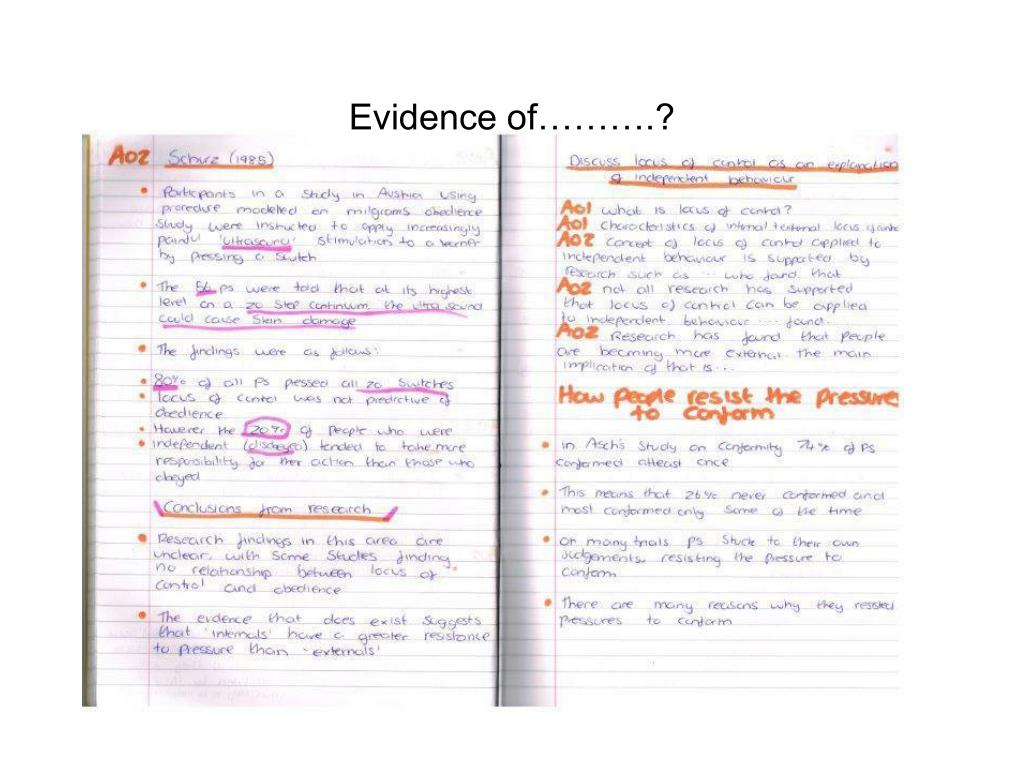 Evidence of……….?
AO2 Schurz (1985)
• Participants in a study in Austria using
procedure modeled on milgrams obedience
study were instructed to apply increasingly
painful 'ultrasound' stimulation to a learner
by pressing a switch
• The 56 ps were told that at its highest
level on a 20 step continuum, the ultra sound
could cause skin damage
• The findings were as follows:
• 80% of all ps pressed all 20 switches
• locus of control was not predictive of
obedience
• However the 20% of people who were
• independent (disobeyed) tended to take more
responsibility for their action than those who
obeyed
Conclusions from research
• Research findings in this area are
unclear, with some studies finding
no relationship between locus of
control and obedience
• The evidence that does exist suggests
that 'internals' have a greater resistance
to pressure than 'externals'
Discuss locus of control as an explanation
of independent behaviour
AO1 what is locus of control?
AO1 characteristics of internal + external locus of
AO2 concept of locus of control applied to
independent behaviour is supported by
research such as ... who found that
AO2 not all research has supported
that locus of control can be applied
to independent behaviour .... found.
AO2 Research has found that people
are becoming more external the main
implication of that is ...
How people resist the pressure
to conform
• in Asch's study on conformity 74% of ps
conformed atleast once
• This means that 26% never conformed and
most conformed only some of the time
• on many trials ps stuck to their own
judgements, resisting the pressure to
conform
• There are many reasons why they resisted
pressures to conform